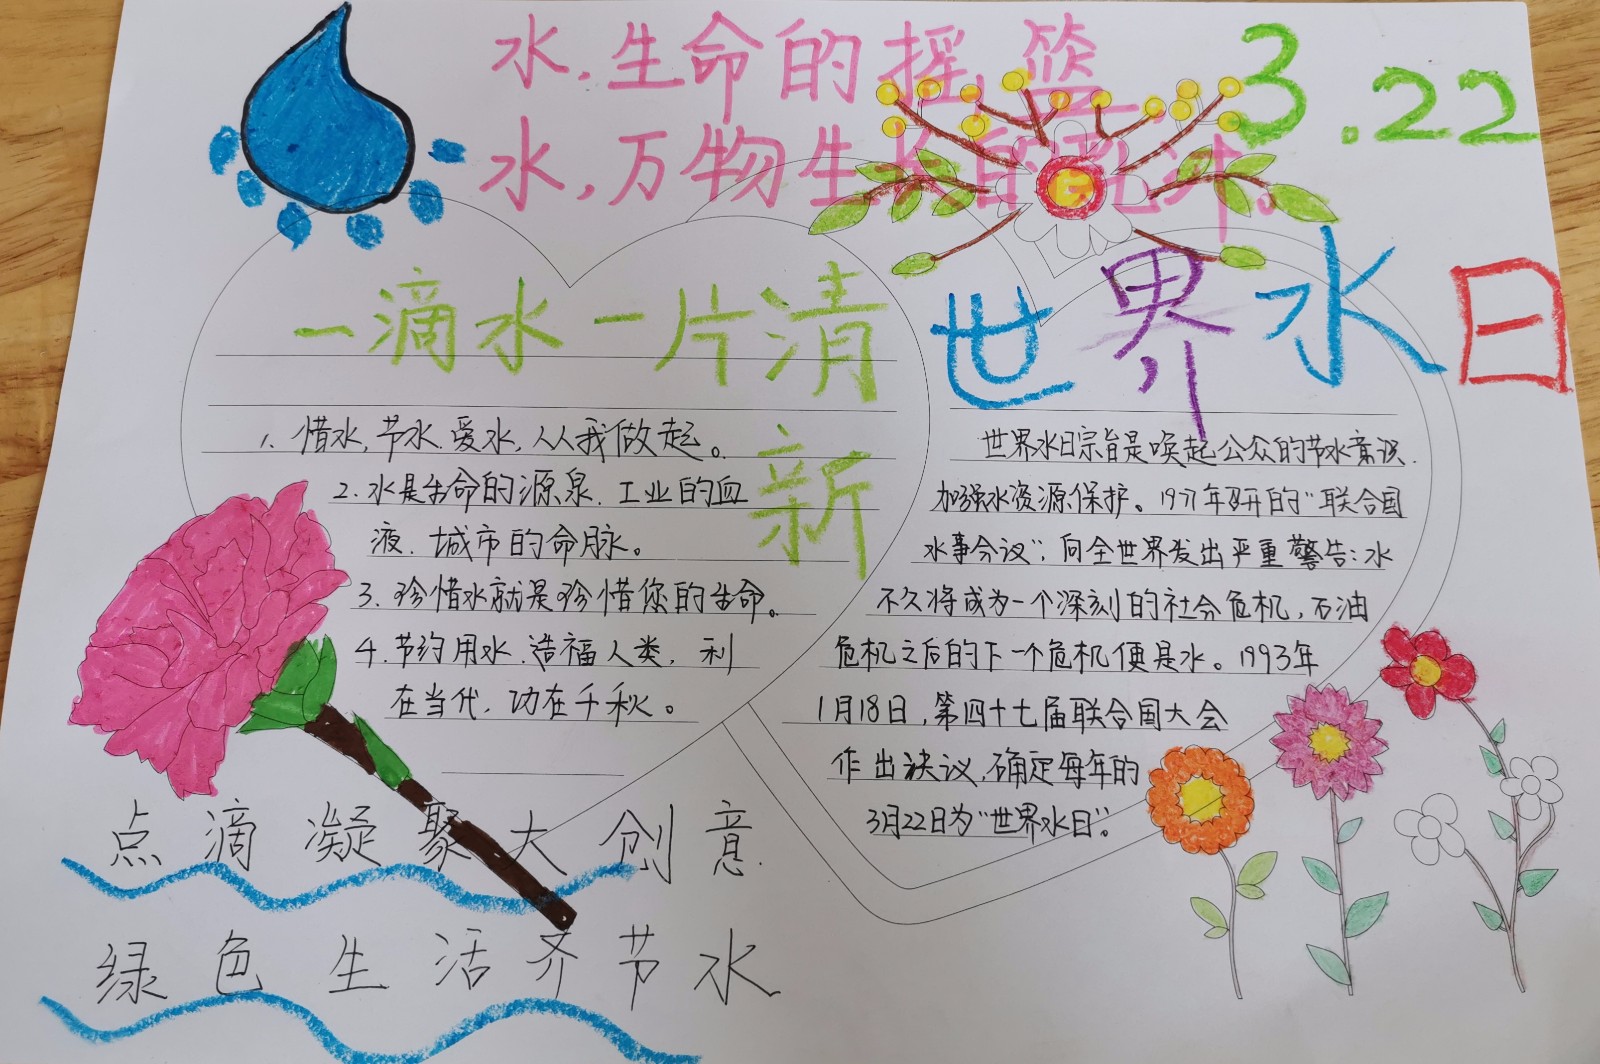 水,生命的摇篮
3.22
水,万物生长的乳汁。
一滴水一片清新
世界水日
1. 惜水,节水.爱水,从我做起。
2.水是生命的源泉.工业的血
液.城市的命脉。
3.珍惜水就是珍惜您的生命。
4.节约用水.造福人类,利
在当代.功在千秋。
世界水日宗旨是唤起公众的节水意识.
加强水资源保护。1977年召开的"联合国
水事会议",向全世界发出严重警告:水
不久将成为一个深刻的社会危机,石油
危机之后的下一个危机便是水。1993年
1月18日,第四十七届联合国大会
作出决议.确定每年的
3月22日为"世界水日"。
点滴凝聚大创意.
绿色生活齐节水